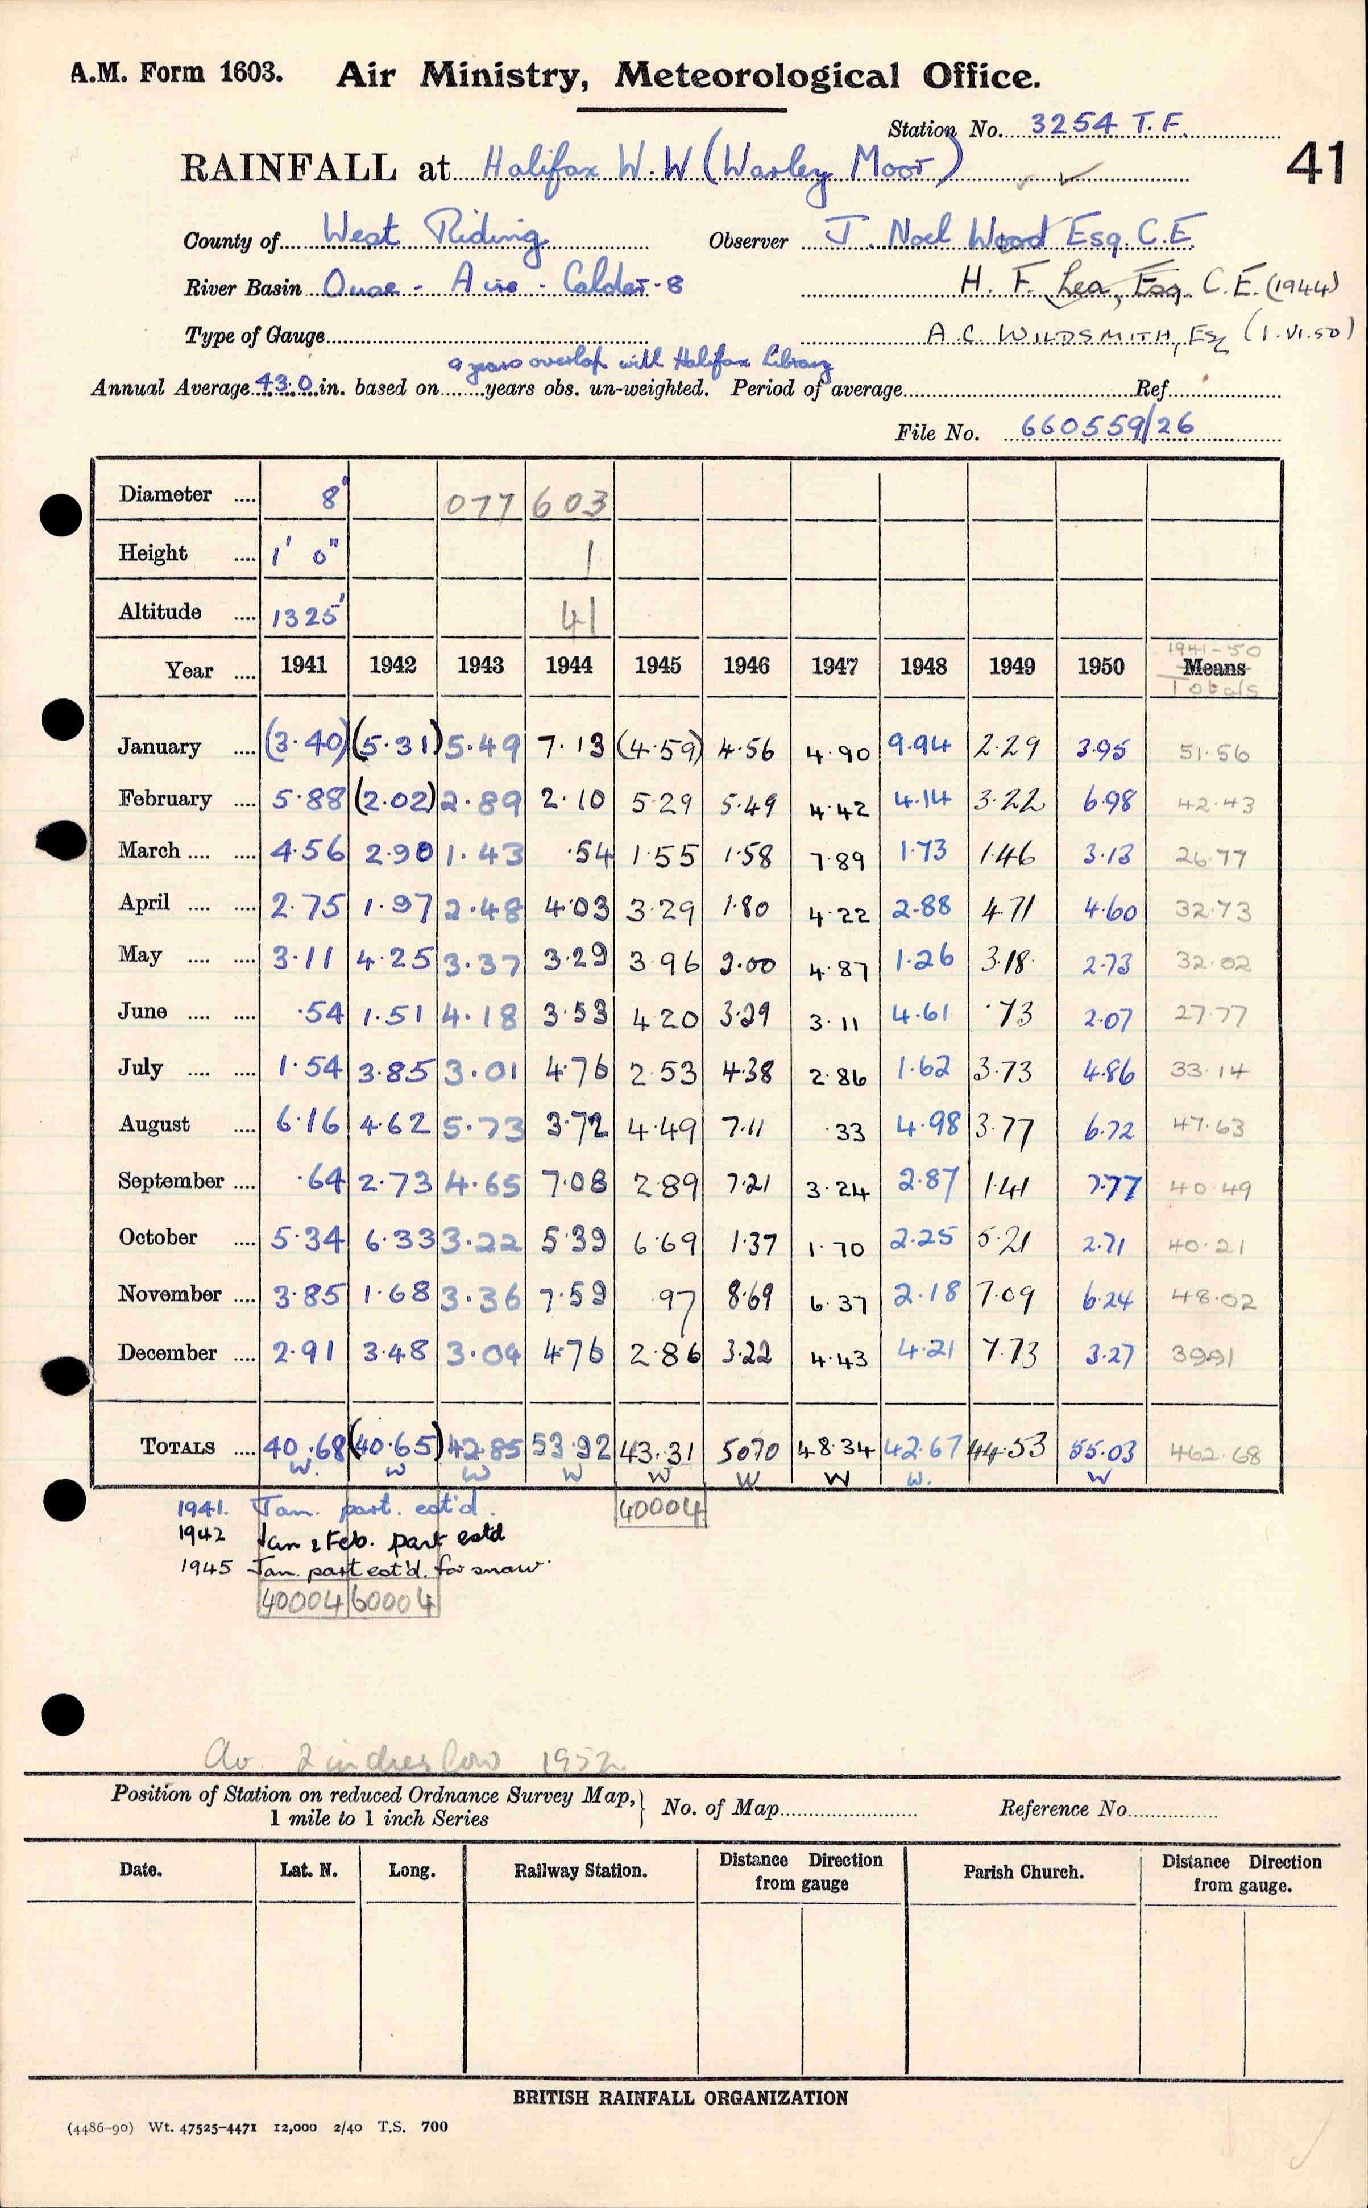 A.M. Form 1603. Air Ministry, Meteorological Office.
Station No. 3254 T.F.
41
RAINFALL at Halifax W.W (Warley Moor)
County of West Riding Observer J. Noel Wood Esq. C.E.
River Basin Ouse - Aire - Calder - 8 H. F. Lea, Esq. C.E. (1944)
Type of Gauge A.C. WILDSMITH, Esq (1.VI.50)
9 years overlap with Halifax Library
Annual Average 43.0 in. based on years obs. un-weighted. Period of average Ref
File No. 660559/26
Diameter .... 8" 077 603
Height .... 1' 0" 1
Altitude .... 1325' 41
1941-50
Year .... 1941 1942 1943 1944 1945 1946 1947 1948 1949 1950 Means
Totals
January .... (3.40) (5.31) 5.49 7.13 (4.59) 4.56 4.90 9.94 2.29 3.95 51.56
February .... 5.88 (2.02) 2.89 2.10 5.29 5.49 4.42 4.14 3.22 6.98 42.43
March .... .... 4.56 2.90 1.43 .54 1.55 1.58 7.89 1.73 1.46 3.13 26.77
April .... .... 2.75 1.97 2.48 4.03 3.29 1.80 4.22 2.88 4.71 4.60 32.73
May .... .... 3.11 4.25 3.37 3.29 3.96 2.00 4.87 1.26 3.18 2.73 32.02
June .... .... .54 1.51 4.18 3.53 4.20 3.29 3.11 4.61 .73 2.07 27.77
July .... .... 1.54 3.85 3.01 4.76 2.53 4.38 2.86 1.62 3.73 4.86 33.14
August .... 6.16 4.62 5.73 3.72 4.49 7.11 .33 4.98 3.77 6.72 47.63
September .... .64 2.73 4.65 7.08 2.89 7.21 3.24 2.87 1.41 7.77 40.49
October .... 5.34 6.33 3.22 5.39 6.69 1.37 1.70 2.25 5.21 2.71 40.21
November .... 3.85 1.68 3.36 7.59 .97 8.69 6.37 2.18 7.09 6.24 48.02
December .... 2.91 3.48 3.04 4.76 2.86 3.22 4.43 4.21 7.73 3.27 39.91
TOTALS .... 40.68 (40.65) 42.85 53.92 43.31 50.70 48.34 42.67 44.53 55.03 462.68
W. W W W W W W W. W
1941. Jan. part. est'd. 40004
1942 Jan & Feb. part estd
1945 Jan. part est'd. for snow
40004 60004
Av. 2 inches low 1952
Position of Station on reduced Ordnance Survey Map, 1 mile to 1 inch Series } No. of Map Reference No.
Date. Lat. N. Long. Railway Station. Distance Direction from gauge Parish Church. Distance Direction from gauge.
BRITISH RAINFALL ORGANIZATION
(4486-90) Wt. 47525-4471 12,000 2/40 T.S. 700